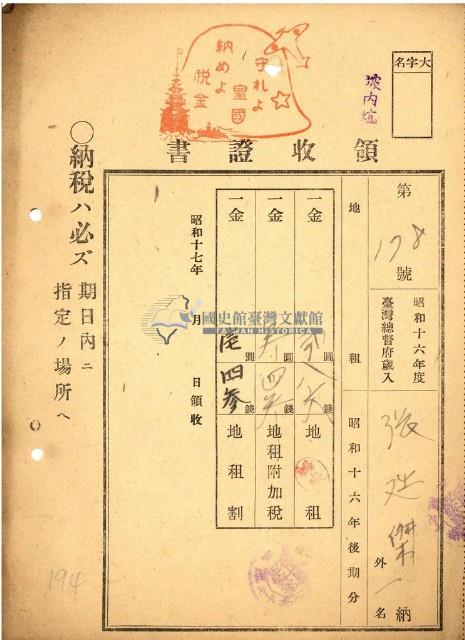 守れよ
皇國
納めよ
税金
大字名
坡内坑
領收證書
第178號
昭和十六年度
臺灣總督府歳入
地租
昭和十六年後期分
張
外一名
納
一金
圓
錢
地租
一金
圓四
錢
地租附加税
一金
圓四参錢
地租割
昭和十七年
月
日領收
國史館臺灣文獻館
TAIWAN HISTORICA
〇納税ハ必ズ
期日内ニ
指定ノ場所へ
194